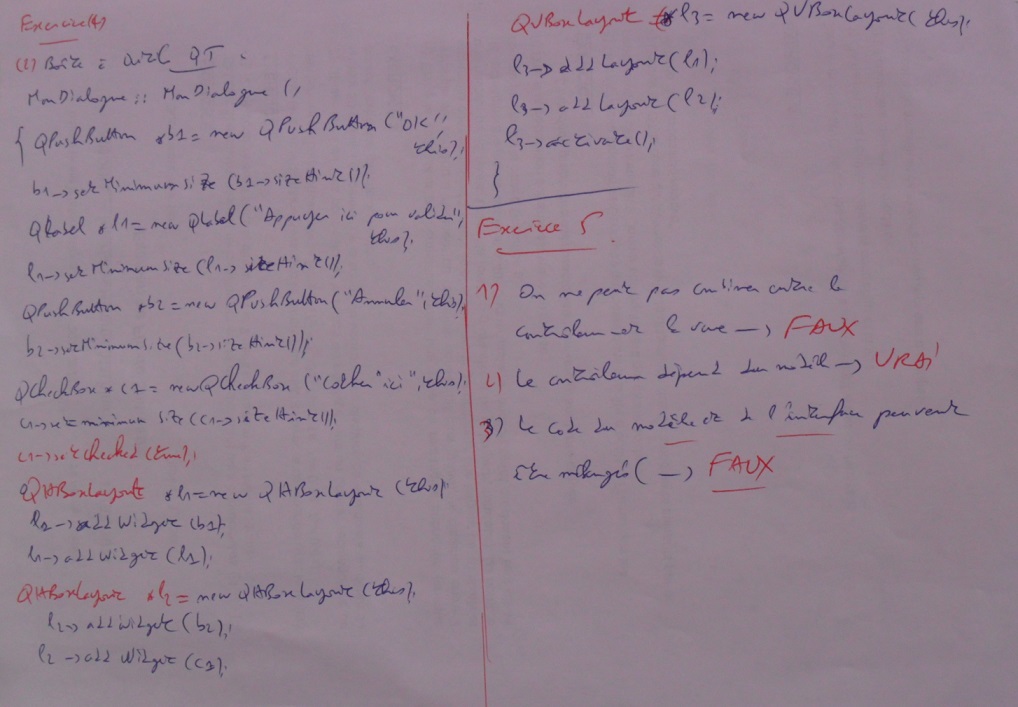 Exercice(4)
(1) Boîte : avec QT.
MonDialogue :: MonDialogue (,
{ QPushButton *b1 = new QPushButton ("OK",
this);
b1->setMinimumsize (b1->sizeHint());
QLabel *l1 = new QLabel ("Appuyer ici pour valider",
this);
l1->setMinimumSize (l1->sizeHint());
QPushButton *b2 = new QPushButton ("Annuler", this);
b2->setMinimumsize (b2->sizeHint());
QCheckBox * c1 = new QCheckBox ("Cocher ici", this);
c1->setminimum size (c1->sizeHint());
c1->setchecked (true);
QHBoxLayout *l1 = new QHBoxLayout (this)
l1->addWidget (b1);
l1->addWidget (l1);
QHBoxLayout *l2 = new QHBoxLayout (this);
l2->addWidget (b2);
l2->addWidget (c1);
QVBoxLayout *l3 = new QVBoxLayout (this);
l3->addLayout (l1);
l3->addLayout (l2);
l3->activate();
}
Exercice 5
1) On ne peut pas entre le
contrôleur et la vue -> FAUX
2) Le contrôleur dépend du modèle -> VRAI
3) Le code du modèle et de l'interface peuvent
être mélangés ( -> FAUX